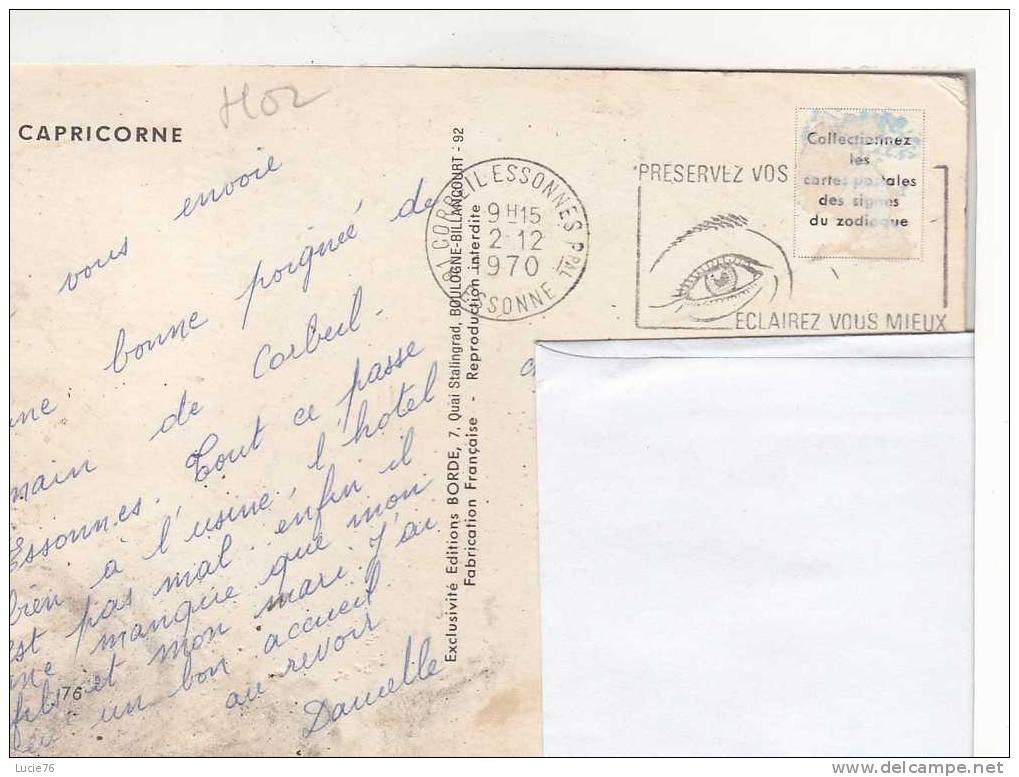 H02
CAPRICORNE
vous envoie
une bonne poignée de
main de Corbeil.
Essonnes. Tout ce passe
bien à l'usine, l'hotel
est pas mal enfin il
me manque que mon
fils et mon mari. J'ai
eu un bon accueil
au revoir
Danielle
176
Exclusivité Editions BORDE, 7, Quai Stalingrad, BOULOGNE-BILLANCOURT - 92
Fabrication Française - Reproduction interdite
91 CORBEIL ESSONNES PPAL
9H15
2-12
1970
ESSONNE
PRESERVEZ VOS
ECLAIREZ VOUS MIEUX
Collectionnez
les
cartes postales
des signes
du zodiaque
Lucie76
delcampe.net